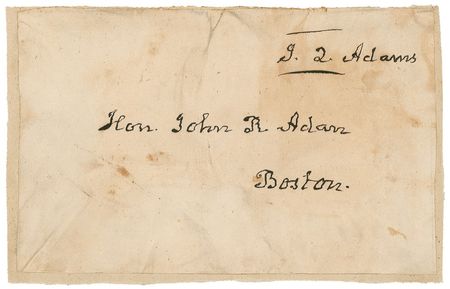 J. Q. Adams
Hon. John R Adan
Boston.